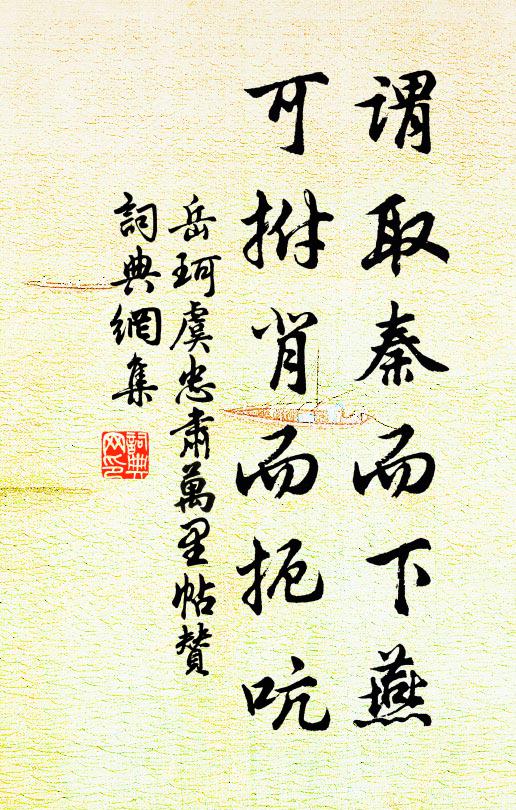 謂取秦而下燕
可拊背而扼吭
岳珂虞忠肅萬里帖贊
詞典網集
詞典网印